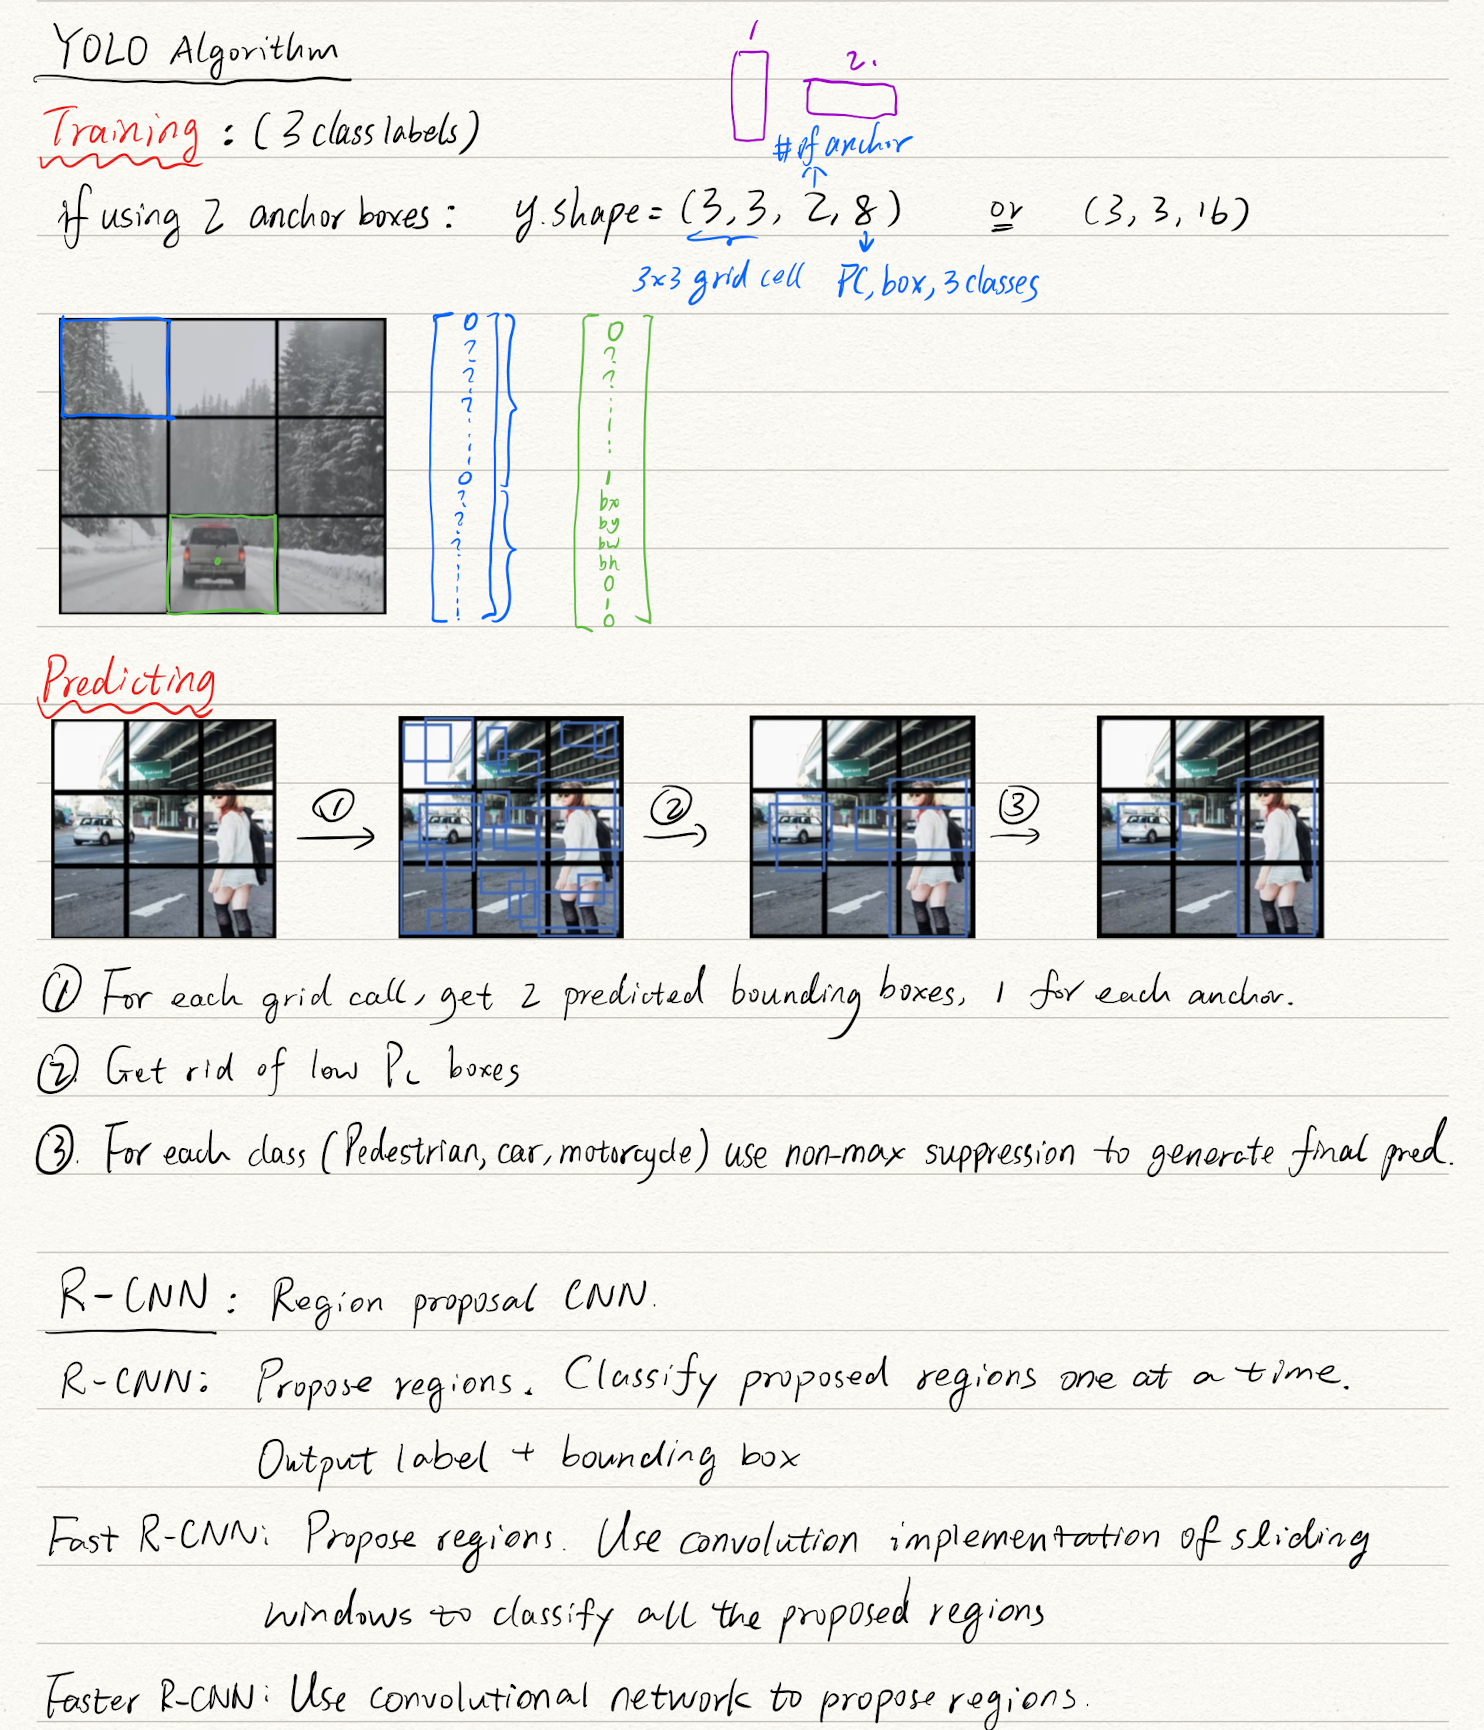 YOLO Algorithm
1
2.
Training : (3 class labels)
# of anchor
if using 2 anchor boxes : y.shape = (3,3, 2, 8) or (3, 3, 16)
3x3 grid cell PC, box, 3 classes
0
?
?
?
0
?
?
?
0
?
?
1
bx
by
bw
bh
0
1
0
Predicting
① ② ③
① For each grid call, get 2 predicted bounding boxes, 1 for each anchor.
②. Get rid of low Pc boxes
③. For each class (Pedestrian, car, motorcycle) use non-max suppression to generate final pred.
R-CNN : Region proposal CNN.
R-CNN: Propose regions. Classify proposed regions one at a time.
Output label + bounding box
Fast R-CNN: Propose regions. Use convolution implementation of sliding
windows to classify all the proposed regions
Faster R-CNN: Use convolutional network to propose regions.